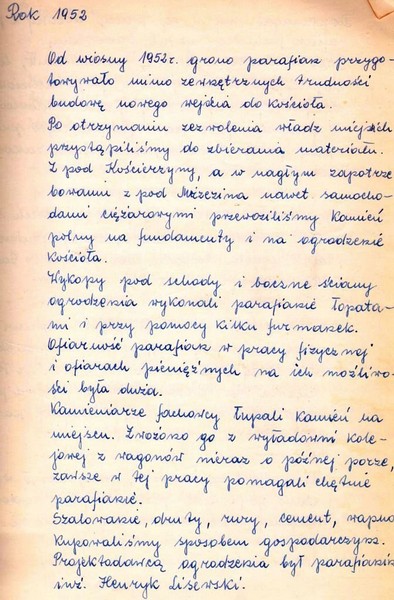 Rok 1952
Od wiosny 1952r. grono parafian przygo-
towywało mimo zewnętrznych trudności
budowę nowego wejścia do kościoła.
Po otrzymaniu zezwolenia władz miejskich
przystąpiliśmy do zbierania materiału.
Z pod Kościerzyny, a w nagłym zapotrze
bowaniu z pod Mrzezina nawet samocho-
dami ciężarowymi przewoziliśmy kamień
polny na fundamenty i na ogrodzenie
kościoła.
Wykopy pod schody i boczne ściany
ogrodzenia wykonali parafianie łopata-
mi i przy pomocy kilku furmanek.
Ofiarność parafian w pracy fizycznej
i ofiarach pieniężnych na ich możliwo-
ści była duża.
Kamieniarze fachowcy łupali kamień na
miejscu. Zwożono go z wyładowni kole-
jowej z wagonów nieraz o późnej porze,
zawsze w tej pracy pomagali chętnie
parafianie.
Szalowanie, druty, rury, cement, wapno
kupowaliśmy sposobem gospodarczym.
Projektodawcą ogrodzenia był parafianin
inż. Henryk Lisewski.